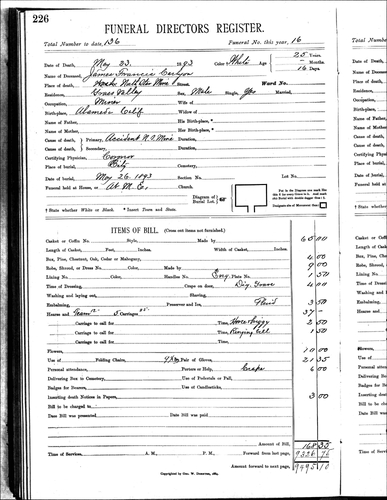 226
FUNERAL DIRECTORS REGISTER.
Total Number to date, 136 Funeral No. this year, 16
Date of Death, May 23. 1893 Color White Age 25 Years
- Months
Name of Deceased, James Francis 16 Days
Place of death, North Star Mine Ward No.
Residence, Grass Valley Male Single, Yes Married,
Occupation, Miner Wife of
Birthplace, Alameda Calif. Widow of
Name of Father, His Birth-place,*
Name of Mother, Her Birth-place,*
Cause of Death, Primary, Accident N.S. Mine Duration,
Cause of Death, Secondary, Duration,
Certifying Physician, Coroner
Place of burial, City Cemetery,
Date of burial, May 26. 1893 Section No. Lot No.
Funeral held at House, or At M. E. Church.
Diagram of Burial Lot.
Put in the Diagram any mark like this if you want the number of
† State whether White or Black. * Insert Town and State.
ITEMS OF BILL. (Cross out items not furnished.)
Casket or Coffin No. Style, Made by 65 00
Length of Casket, Feet, Inches. Width of Casket, Inches.
Box, Pine, Chestnut, Oak, Cedar or Mahogany, 6 00
Robe, Shroud, or Dress No. Color, Made by 9 00
Lining No. Color, Handles No. Eng. Plate No. 1 50
Time of Dressing, Crape on door, Dig. Grave 4 00
Washing and laying out, Shaving,
Embalming, Preserver and Ice, Fluid 3 50
Hearse and Team 12- 5 Carriages 25- 37 -
Carriage to call for Time, Horse & Buggy 2 50
Carriage to call for Time, Ringing Bell 1 50
Flowers, 10 00
Use of Folding Chairs, Pairs of Gloves, 21 35
Personal attendance, Porters or Help, Crape 6 00
Delivering Box to Cemetery, Use of Pedestals or Pall,
Badges for Bearers, Use of Candlesticks,
Inserting death Notices in Papers, 3 00
Bill to be charged to
Date Bill was presented Date Bill was paid
Amount of Bill, 168 35
Time of Services, A. M., P. M. Forward from last page,
Amount forward to next page,